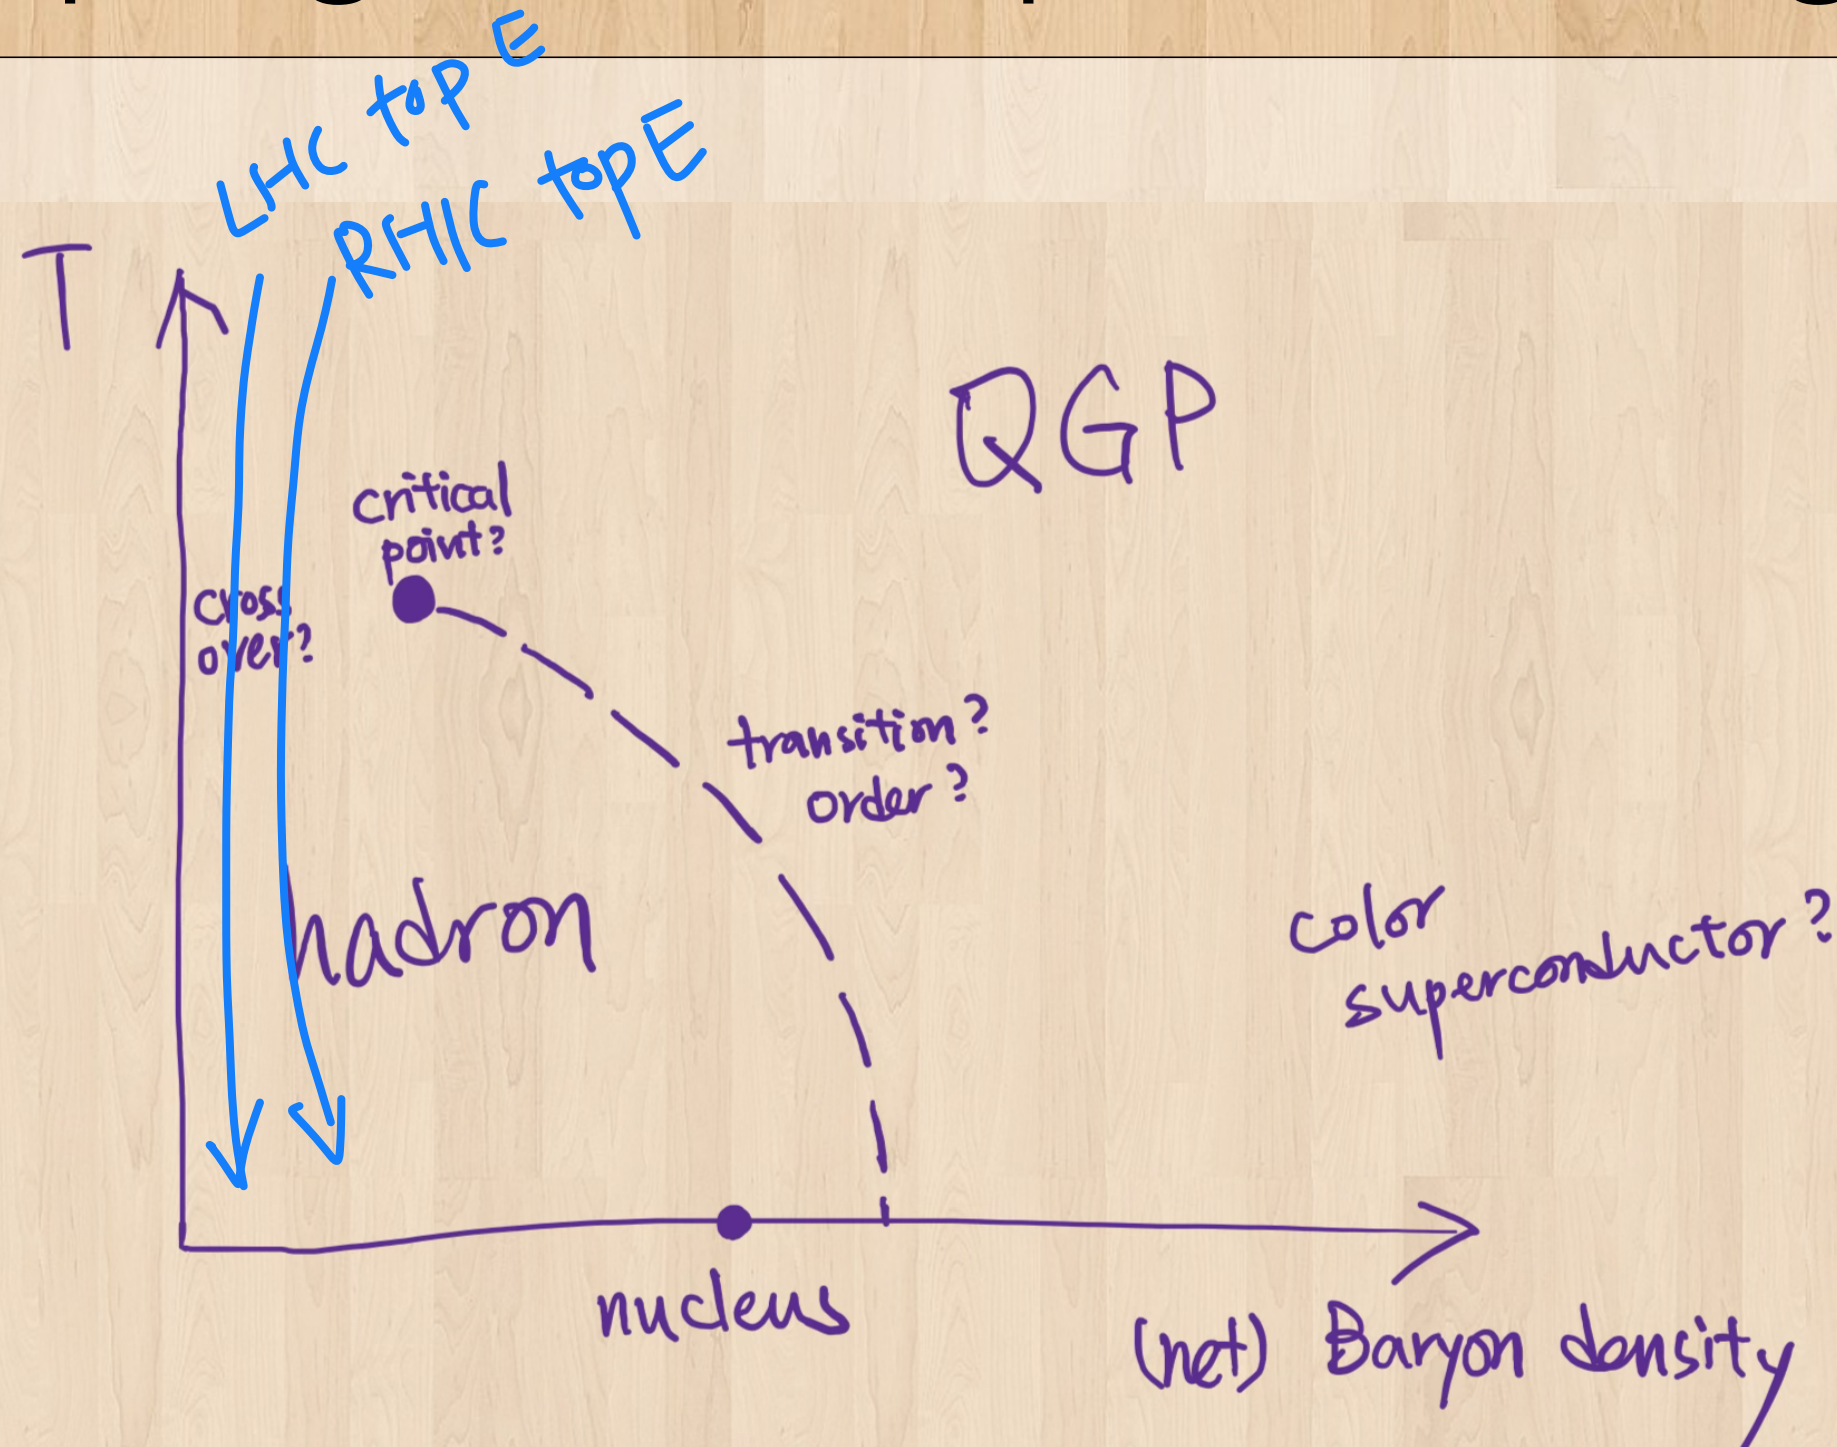 LHC top E
RHIC top E
T
QGP
critical
point?
cross
over?
transition?
order?
hadron
color
superconductor?
nucleus
(net) Baryon density